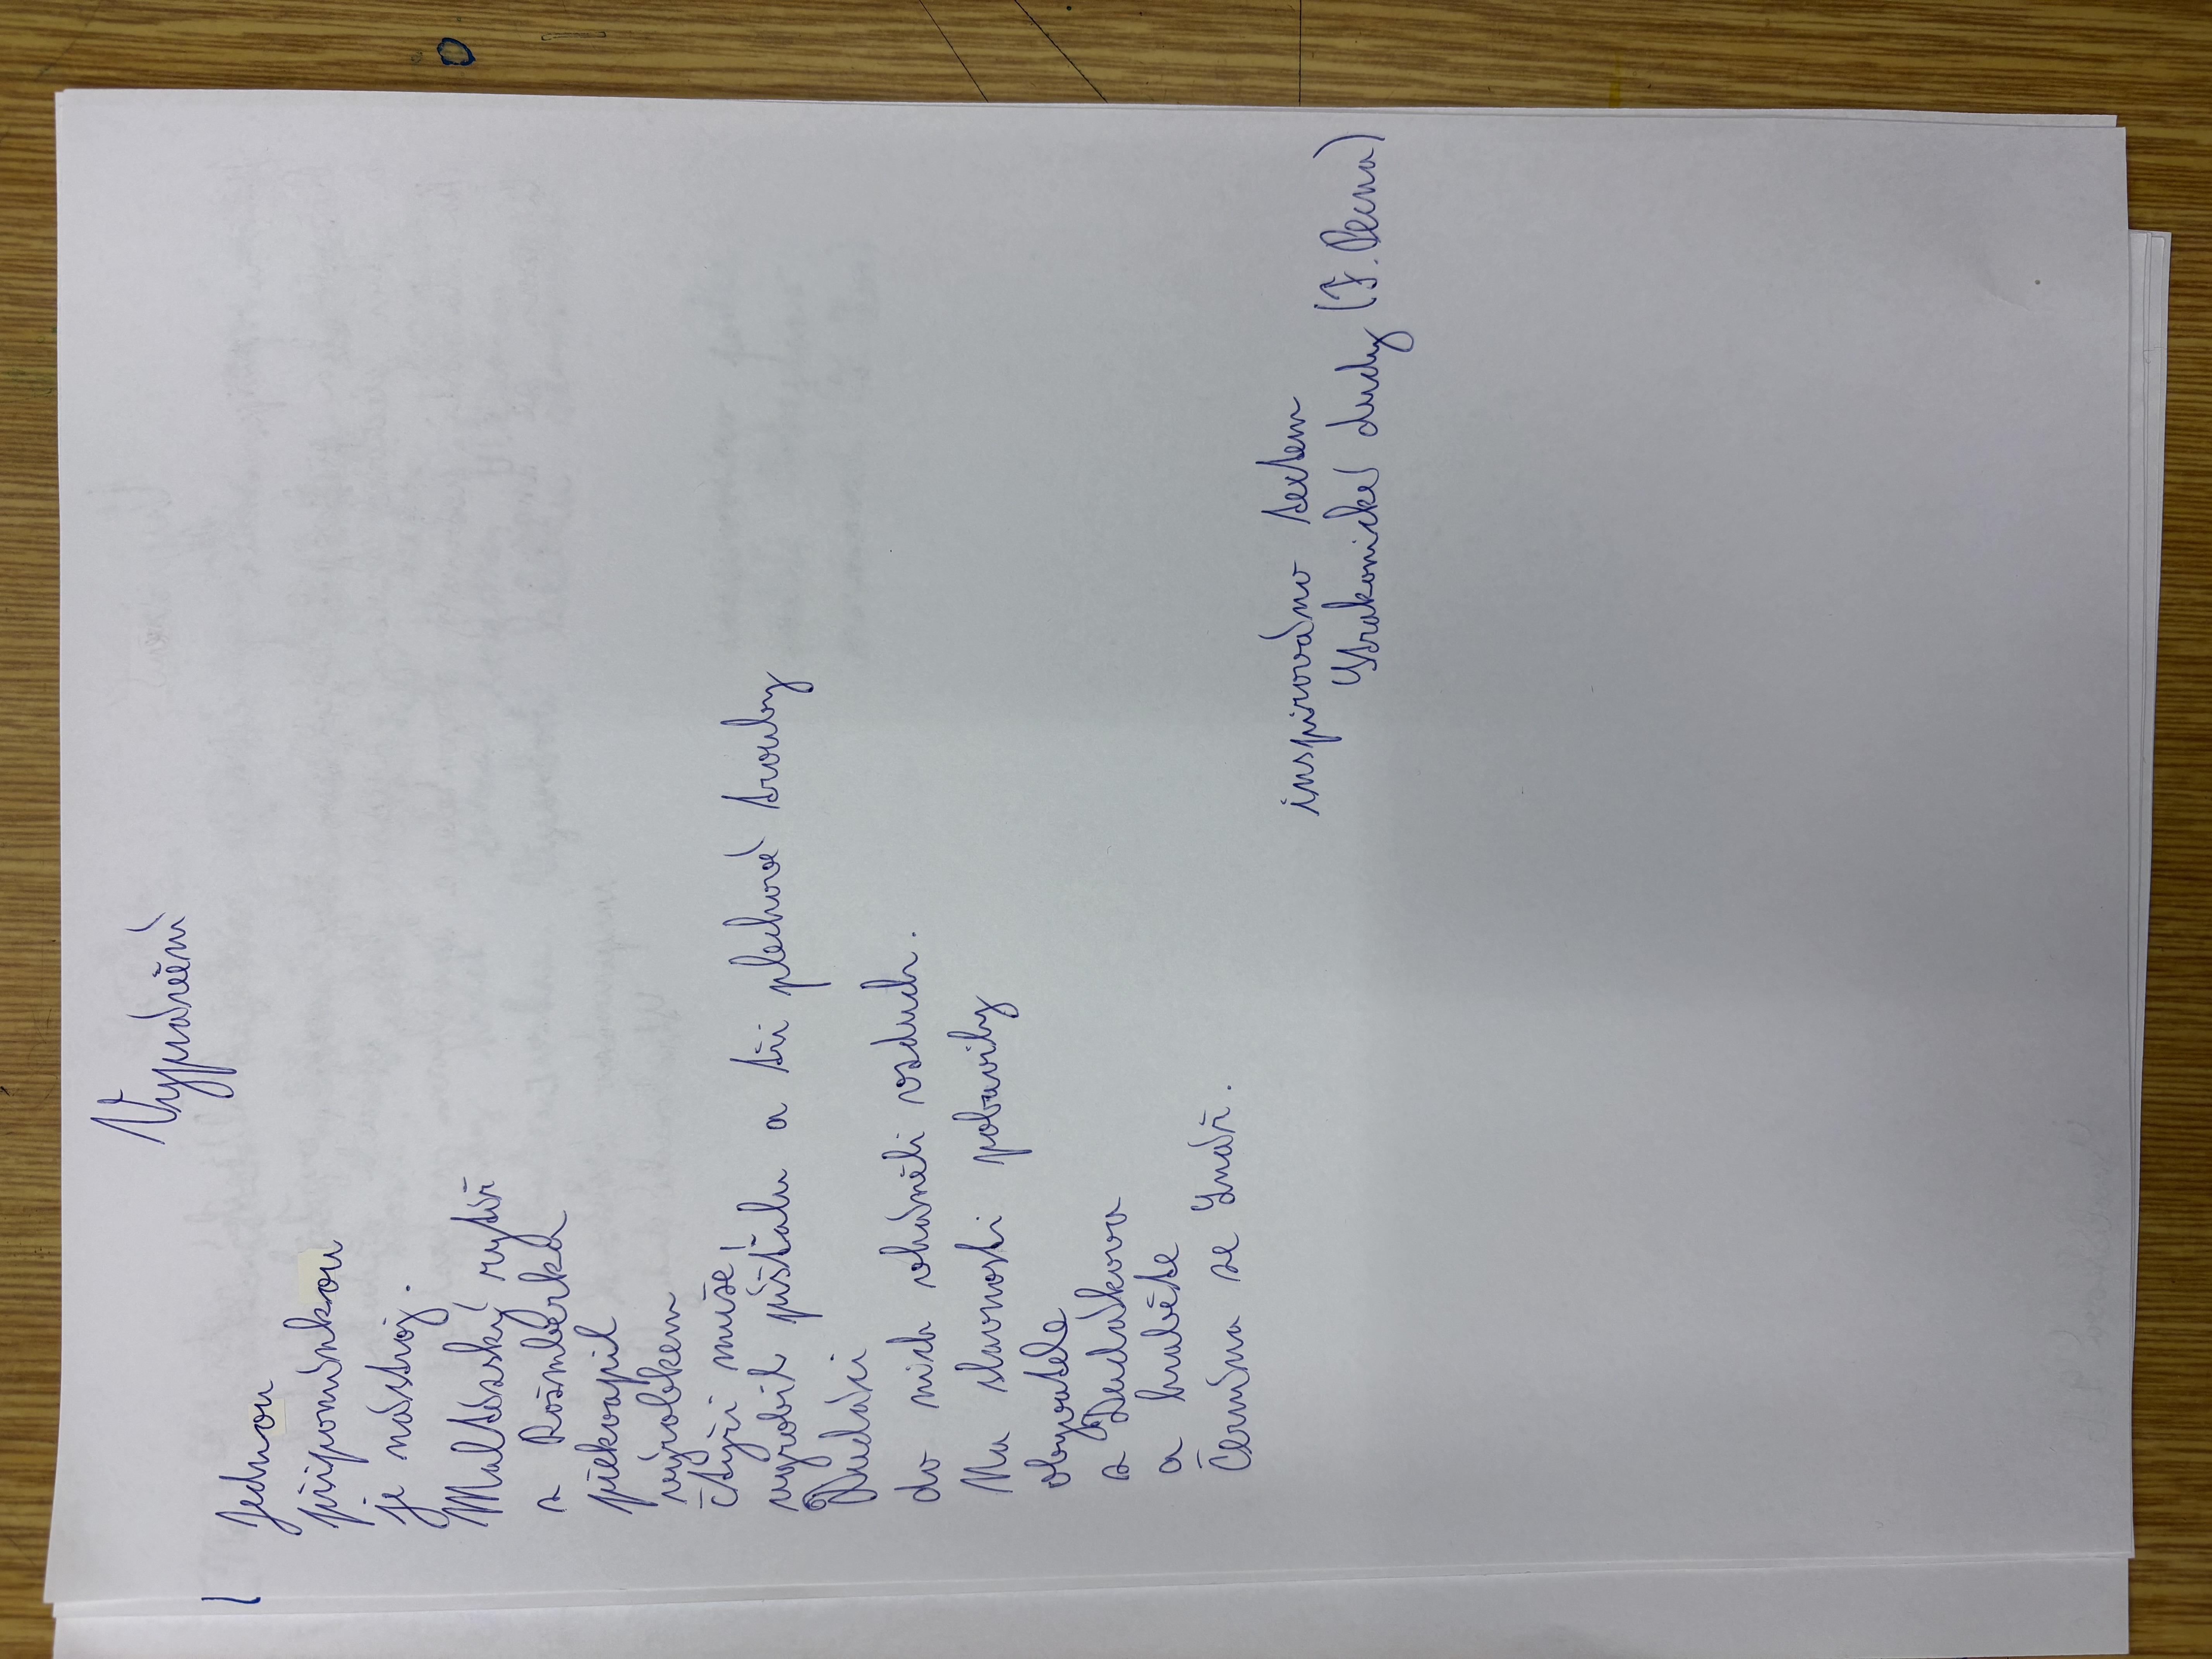 Vyprávění
Jednou
připomínkou
je nástroj.
Maltézský rytíř
z Rožmberka
překvapil
výrobkem
čtyři muže!
vyrobil píšťalu a tři plechové trouby
Dudáci
do nich vháněli vzduch.
Na slavnosti pobavily
obyvatele
z Dudákova
a hraběte
Černína ze Lnář.
inspirováno textem
Strakonické dudy (J. Pecna)